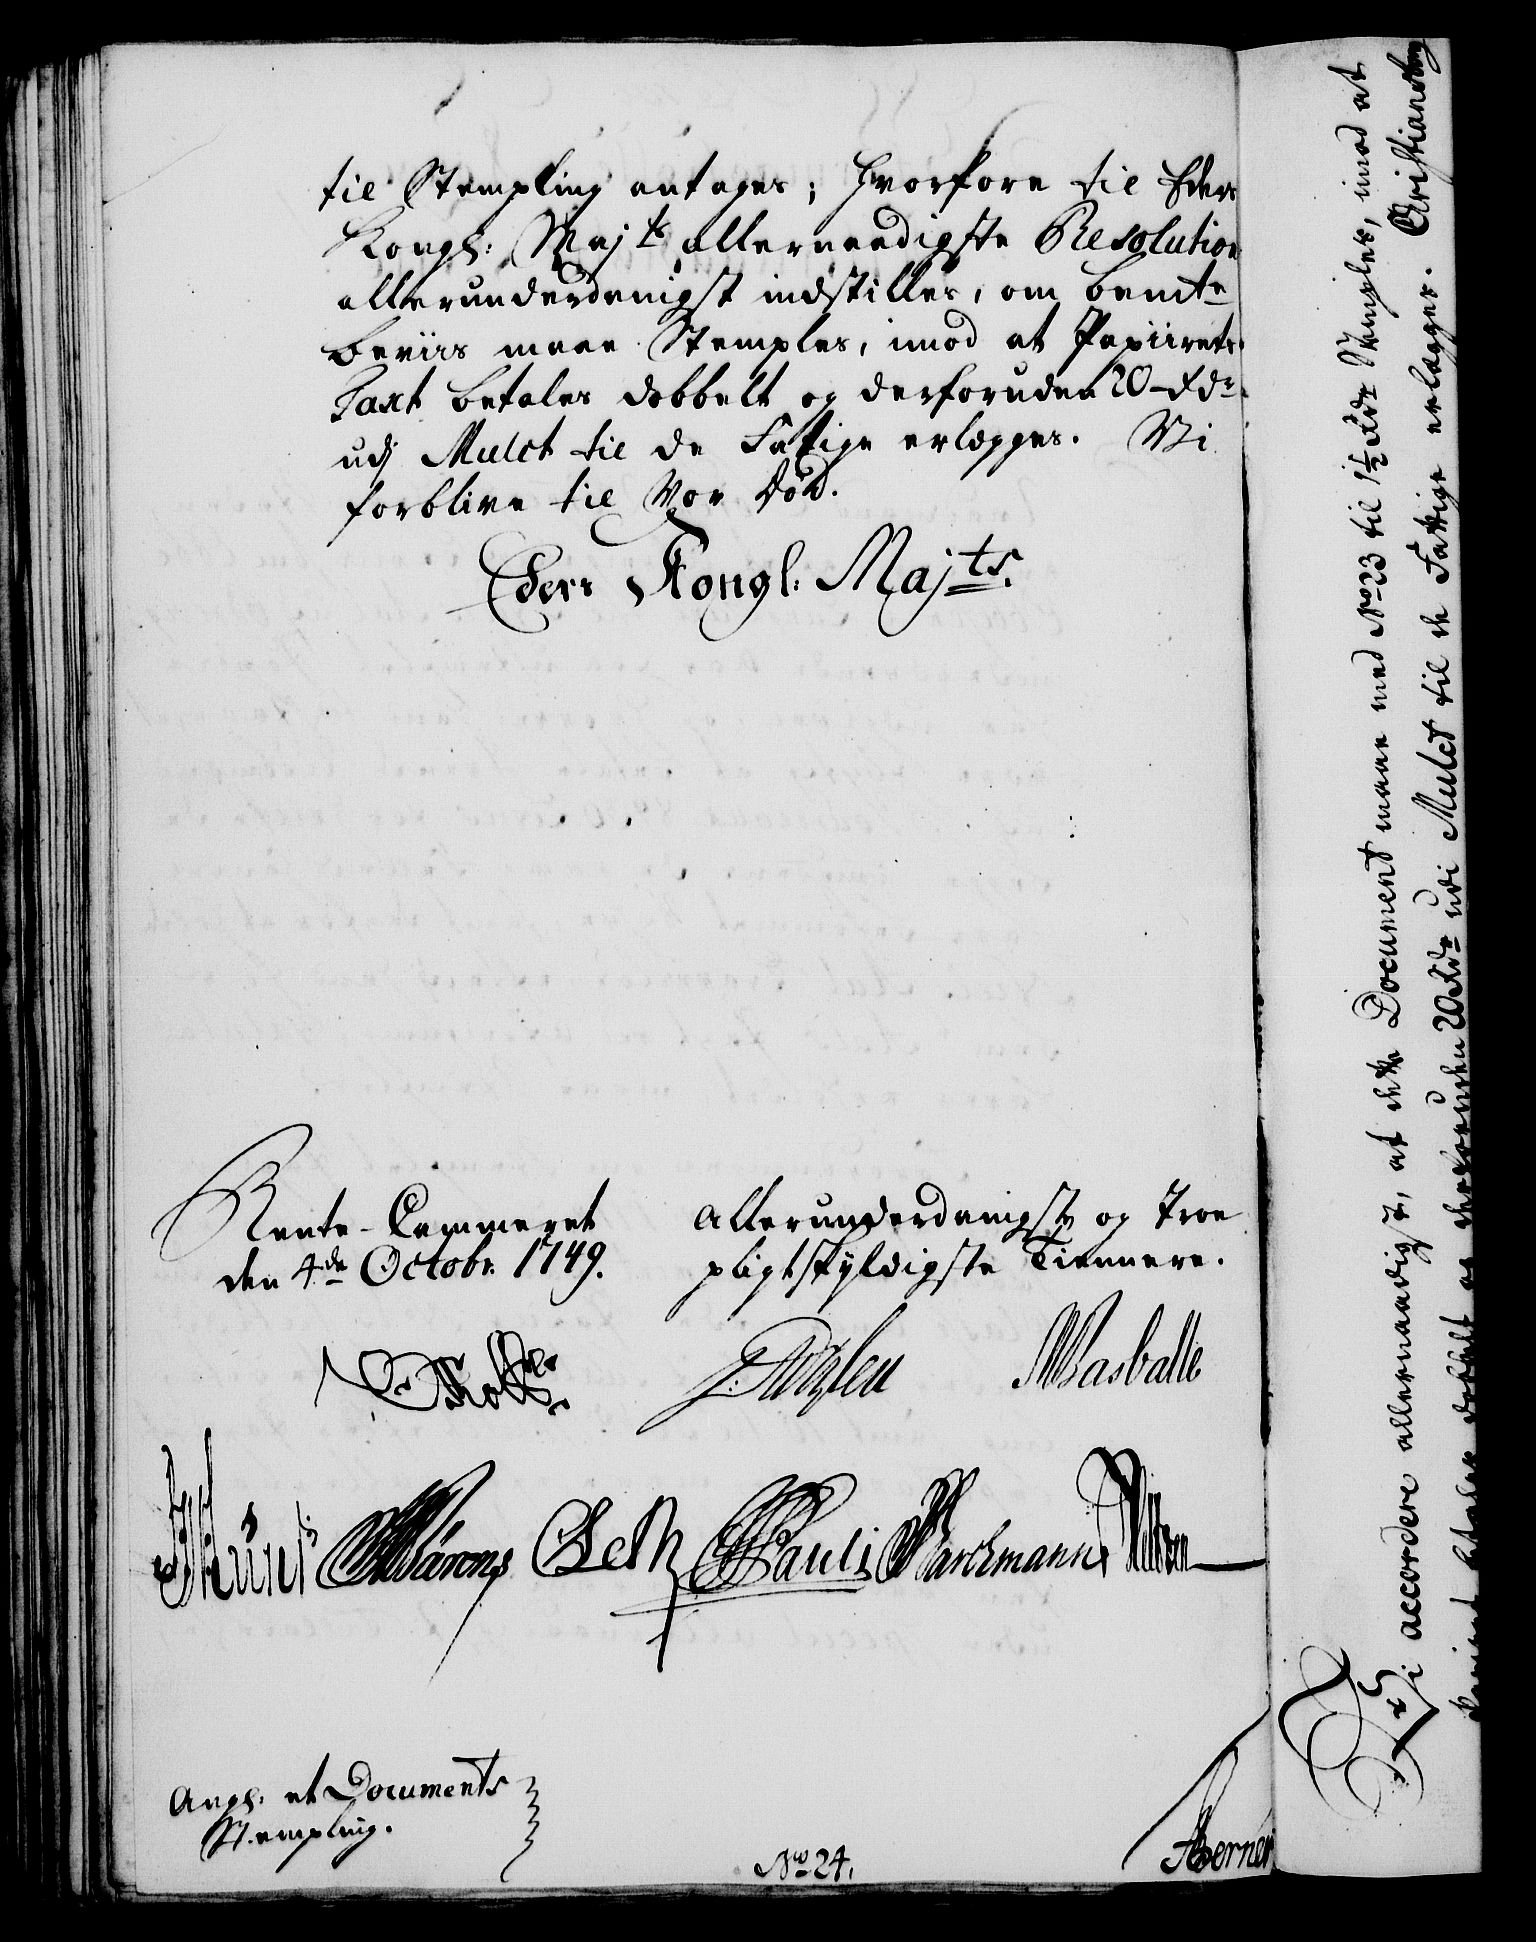 til Stempling antages; hvorfore til Eders
Kongl: Majts allernaadigste Resolution
allerunderdanigst indstilles, om bemte
Beviis maae Stemples, imod at Papiirets
Taxt betales dobbelt og derforuden 20 Rdr
udj Mulct til de Fattige erlægges. Vi
forblive til Vor Død.
Eders Kongl: Majts.
Rente-Cammeret
den 4de Octobr: 1749.
allerunderdanigste og Troe
pligtskyldigste Tiennere.
JWasballe
Seth Pauli Barchmann
Angl: et Documents
Stempling.
No 24.
Berner
Vi accordere allernaadigst, at dette Document maae med No 23 til 1½ Rdr Stemples, imod at
Papiiret betales dobbelt og derforuden 20 Rdr udi Mulct til de Fattige erlægges. Christiansborg